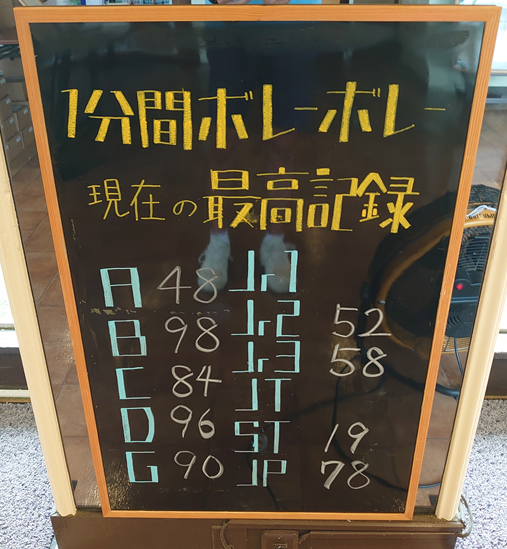 1分間ボレーボレー
現在の最高記録
A 48
B 98
C 84
D 96
G 90
Jr1
Jr2 52
Jr3 58
JT
ST 19
JP 78